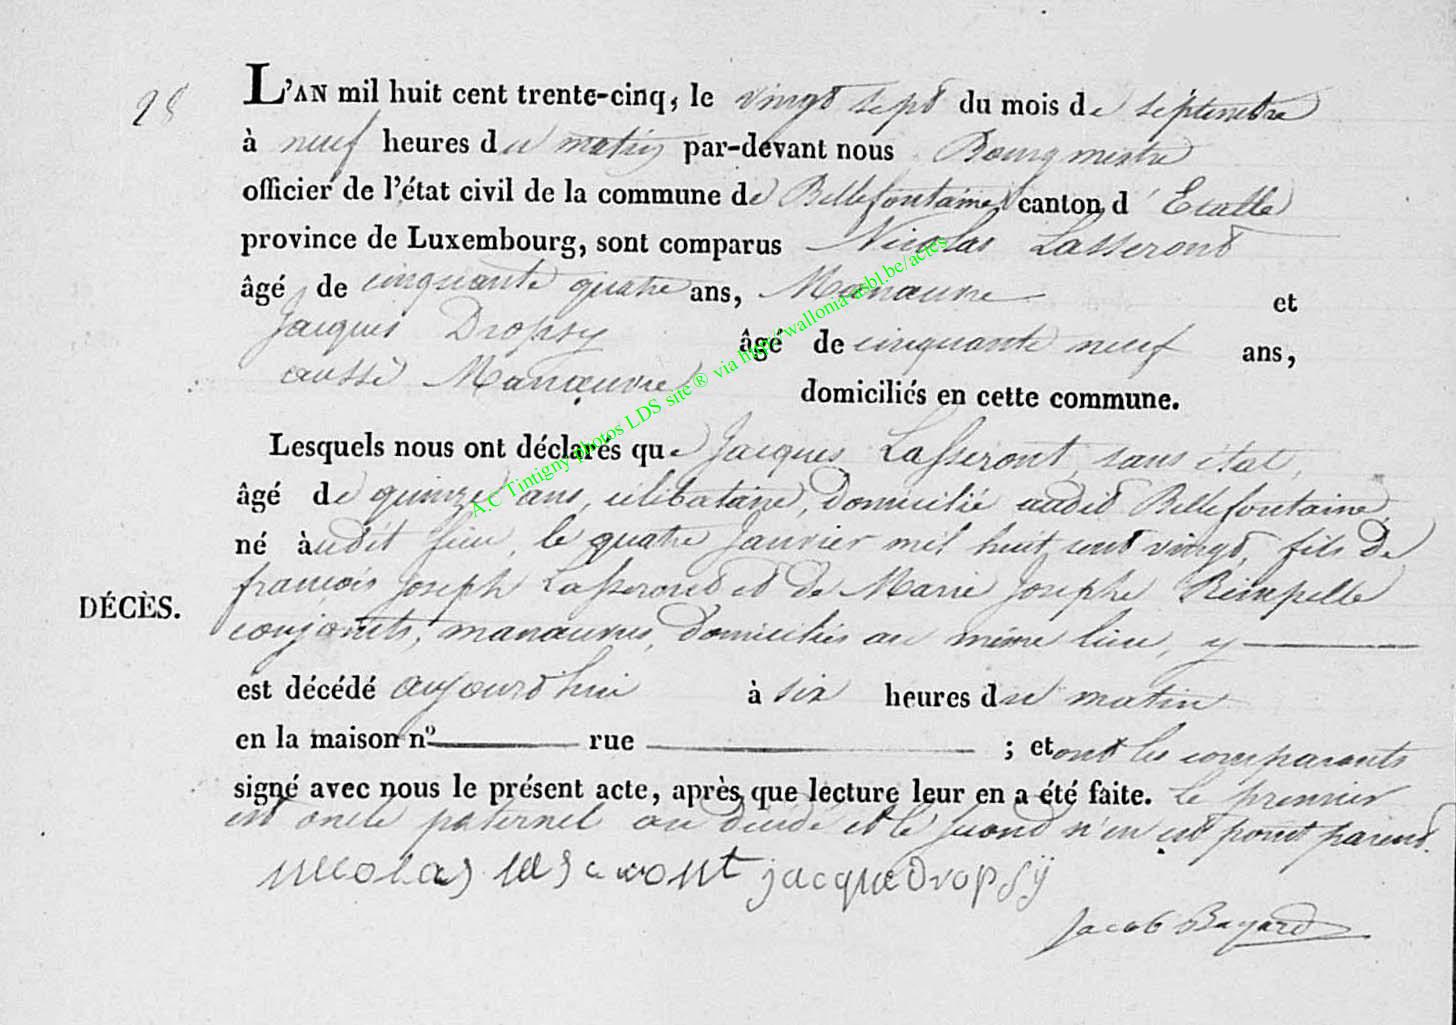 28
L'AN mil huit cent trente-cinq, le vingt sept du mois de septembre
à neuf heures du matin par-devant nous Bourgmestre
officier de l'état civil de la commune de Bellefontaine canton d'Etalle
province de Luxembourg, sont comparus Nicolas Lasseront
âgé de cinquante quatre ans, Manœuvre et
Jacques Dropsy âgé de cinquante neuf ans,
aussi Manœuvre domiciliés en cette commune.
Lesquels nous ont déclarés que Jacques Lasseront, sans état,
âgé de quinze ans, célibataire, domicilié audit Bellefontaine,
né àudit lieu, le quatre Janvier mil huit cent vingt, fils de
françois Joseph Lasseront et de Marie Josephe Rimpelle
DÉCÈS.
conjoints, manœuvres, domiciliés au même lieu, y
est décédé aujourd'hui à six heures du matin
en la maison nº rue ; et ont les comparants
signé avec nous le présent acte, après que lecture leur en a été faite. Le premier
est oncle paternel au décédé et le second n'en est point parent.
nicolas lasseront jacque Dropsÿ
Jacob Bayard
A.C Tintigny photos LDS site ® via http://wallonia-asbl.be/actes